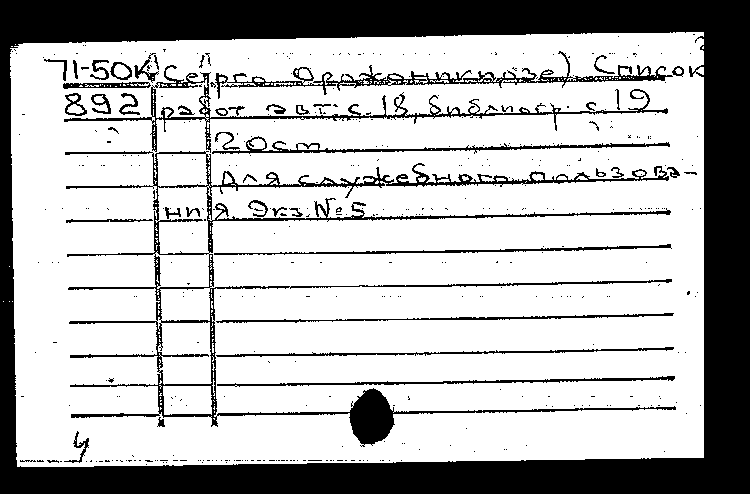 71-50К Серго Орджоникидзе) Список
892 работ авт: с. 18, библиогр. с 19
20 cm.
Для служебного пользова-
ния. Экз. № 5
4